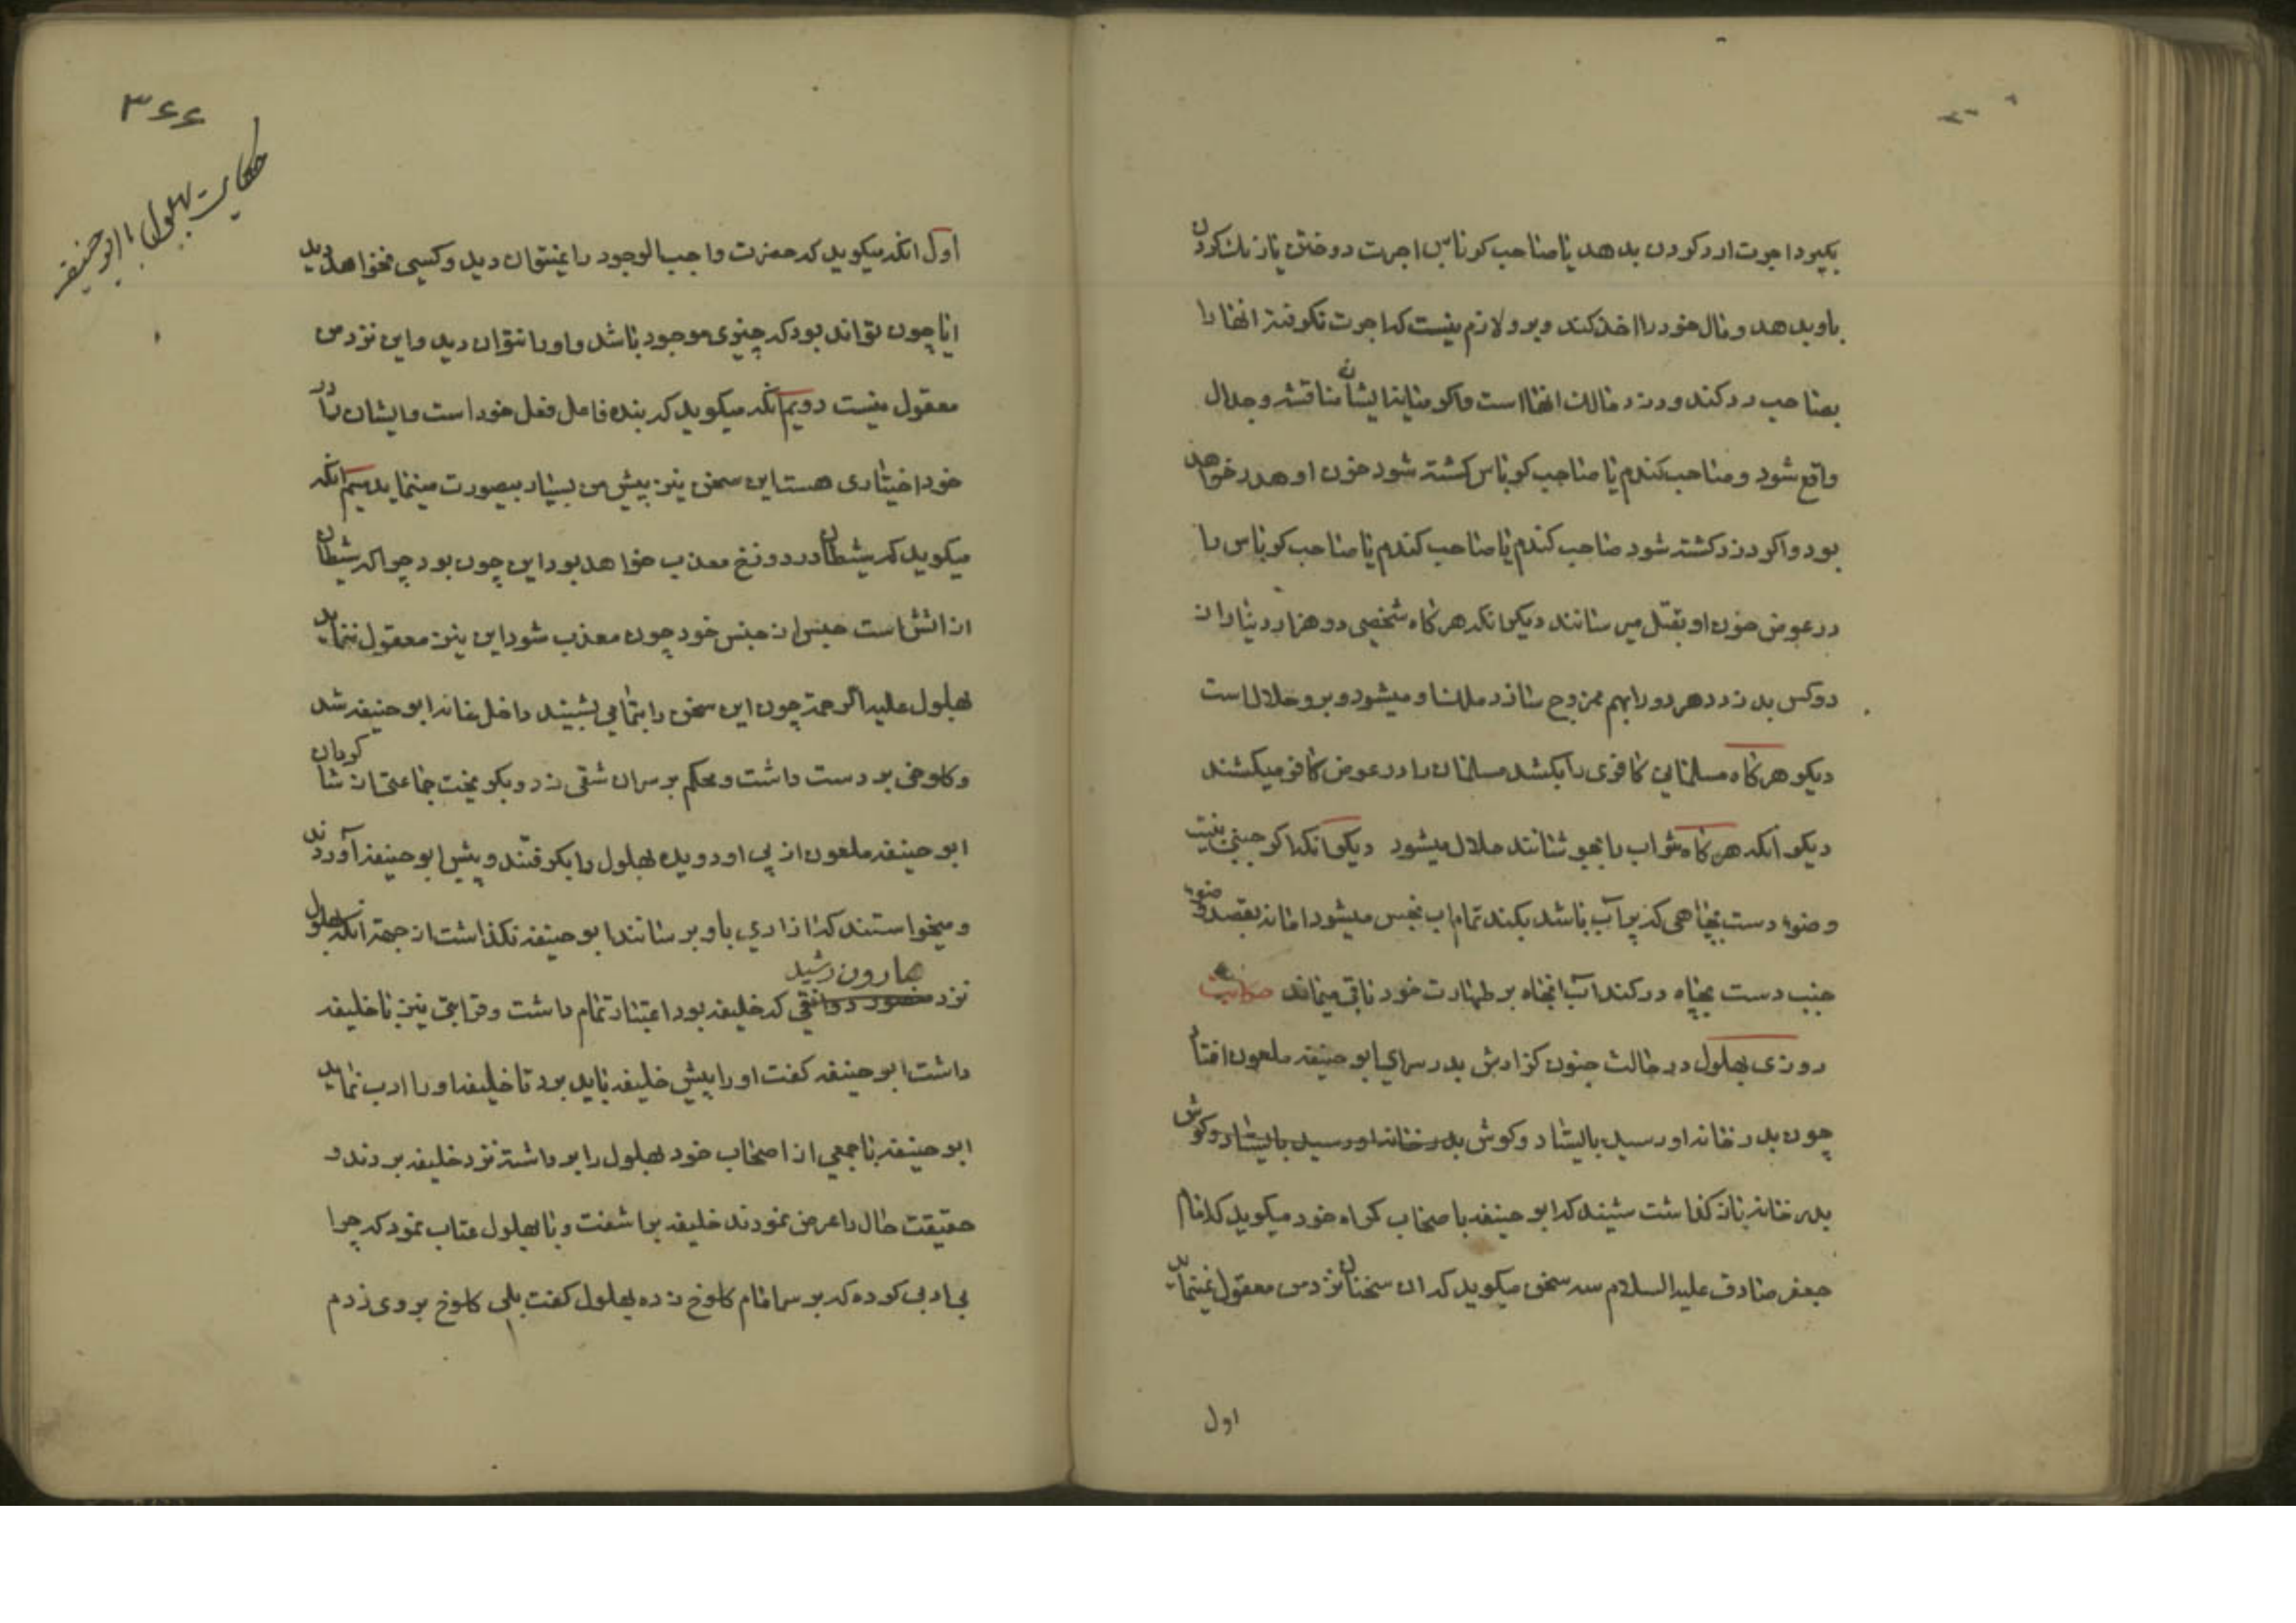 بگیرد اجرت ارد کردن بدهد یا صاحب کرباس اجرت دوختن یا رنگ کردن
باو بدهد و مال خود را اخذ کند و برو لازم نیست که اجرت نکرفته انها را
بصاحب رد کند و دزد مالک انهاست و اکر میانه ایشان مناقشه و جدال
واقع شود و صاحب کندم یا صاحب کرباس کشته شود خون او هدر خواهد
بود و اکر دزد کشته شود صاحب کندم یا صاحب کندم یا صاحب کرباس را
در عوض خون او بقتل میرسانند دیکر انکه هر کاه شخصی دو هزار دینار از
دو کس بدزدد هر دو را بهم ممزوج سازد ملک او میشود و برو حلال است
دیکر هر کاه مسلمانی کافری را بکشد مسلمان را در عوض کافر میکشند
دیکر آنکه هر کاه شراب را بجوشانند حلال میشود دیکر انکه اکر جنبی بنیت
وضوء دست بچاهی که پر آب باشد بکند تمام اب نجس میشود اما نه بقصد وضوء
جنب دست بچاه در کند آب انچاه بر طهارت خود باقی میماند حکایت
روزی بهلول در حالت جنون کزارش بدر سرای ابو حنیفه ملعون افتاد
چون بدر خانه او رسید بایستاد و کوش بدر خانه او رسید بایستاد و کوش
بدر خانه باز کذاشت شنید که ابو حنیفه باصحاب کمراه خود میکوید که امام
جعفر صادق علیه السلام سه سخن میکوید که ان سخنان نزد من معقول نمینماید
اول
۳۶۶
حکایت بهلول با ابو حنیفه
اول انکه میکوید که حضرت واجب الوجود را نمیتوان دید و کسی نخواهد دید
ایا چون تواند بود که چیزی موجود باشد و او را نتوان دید و این نزد من
معقول نیست دویم انکه میکوید که بنده فاعل فعل خود است و ایشان را در
خود اختیاری هست این سخن نیز پیش من بسیار بیصورت مینماید سیم انکه
میکوید که شیطان در دوزخ معذب خواهد بود این چون بود چرا که شیطان
از اتش است جنس از جنس خود چون معذب شود این نیز معقول ننماید
بهلول علیه الرحمة چون این سخن را بتمامی بشنید داخل خانه ابو حنیفه شد
و کلوخی بر دست داشت و محکم بر سر ان شقی زد و بکریخت جماعتی از شاکردان
ابو حنیفه ملعون از پی او دویده بهلول را بکرفتند و پیش ابو حنیفه آوردند
و میخواستند که ازاری باو برسانند ابو حنیفه نکذاشت از جهة انکه بهلول
هارون رشید
نزد منصور دوانقی که خلیفه بود اعتبار تمام داشت و قرابتی نیز با خلیفه
داشت ابو حنیفه کفت او را پیش خلیفه باید برد تا خلیفه او را ادب نماید
ابو حنیفه با جمعی از اصحاب خود بهلول را برداشته نزد خلیفه بردند و
حقیقت حال را عرض نمودند خلیفه براشفت و با بهلول عتاب نمود که چرا
بی ادبی کرده که بر سر امام کلوخ زده بهلول کفت بلی کلوخ بر وی زدم